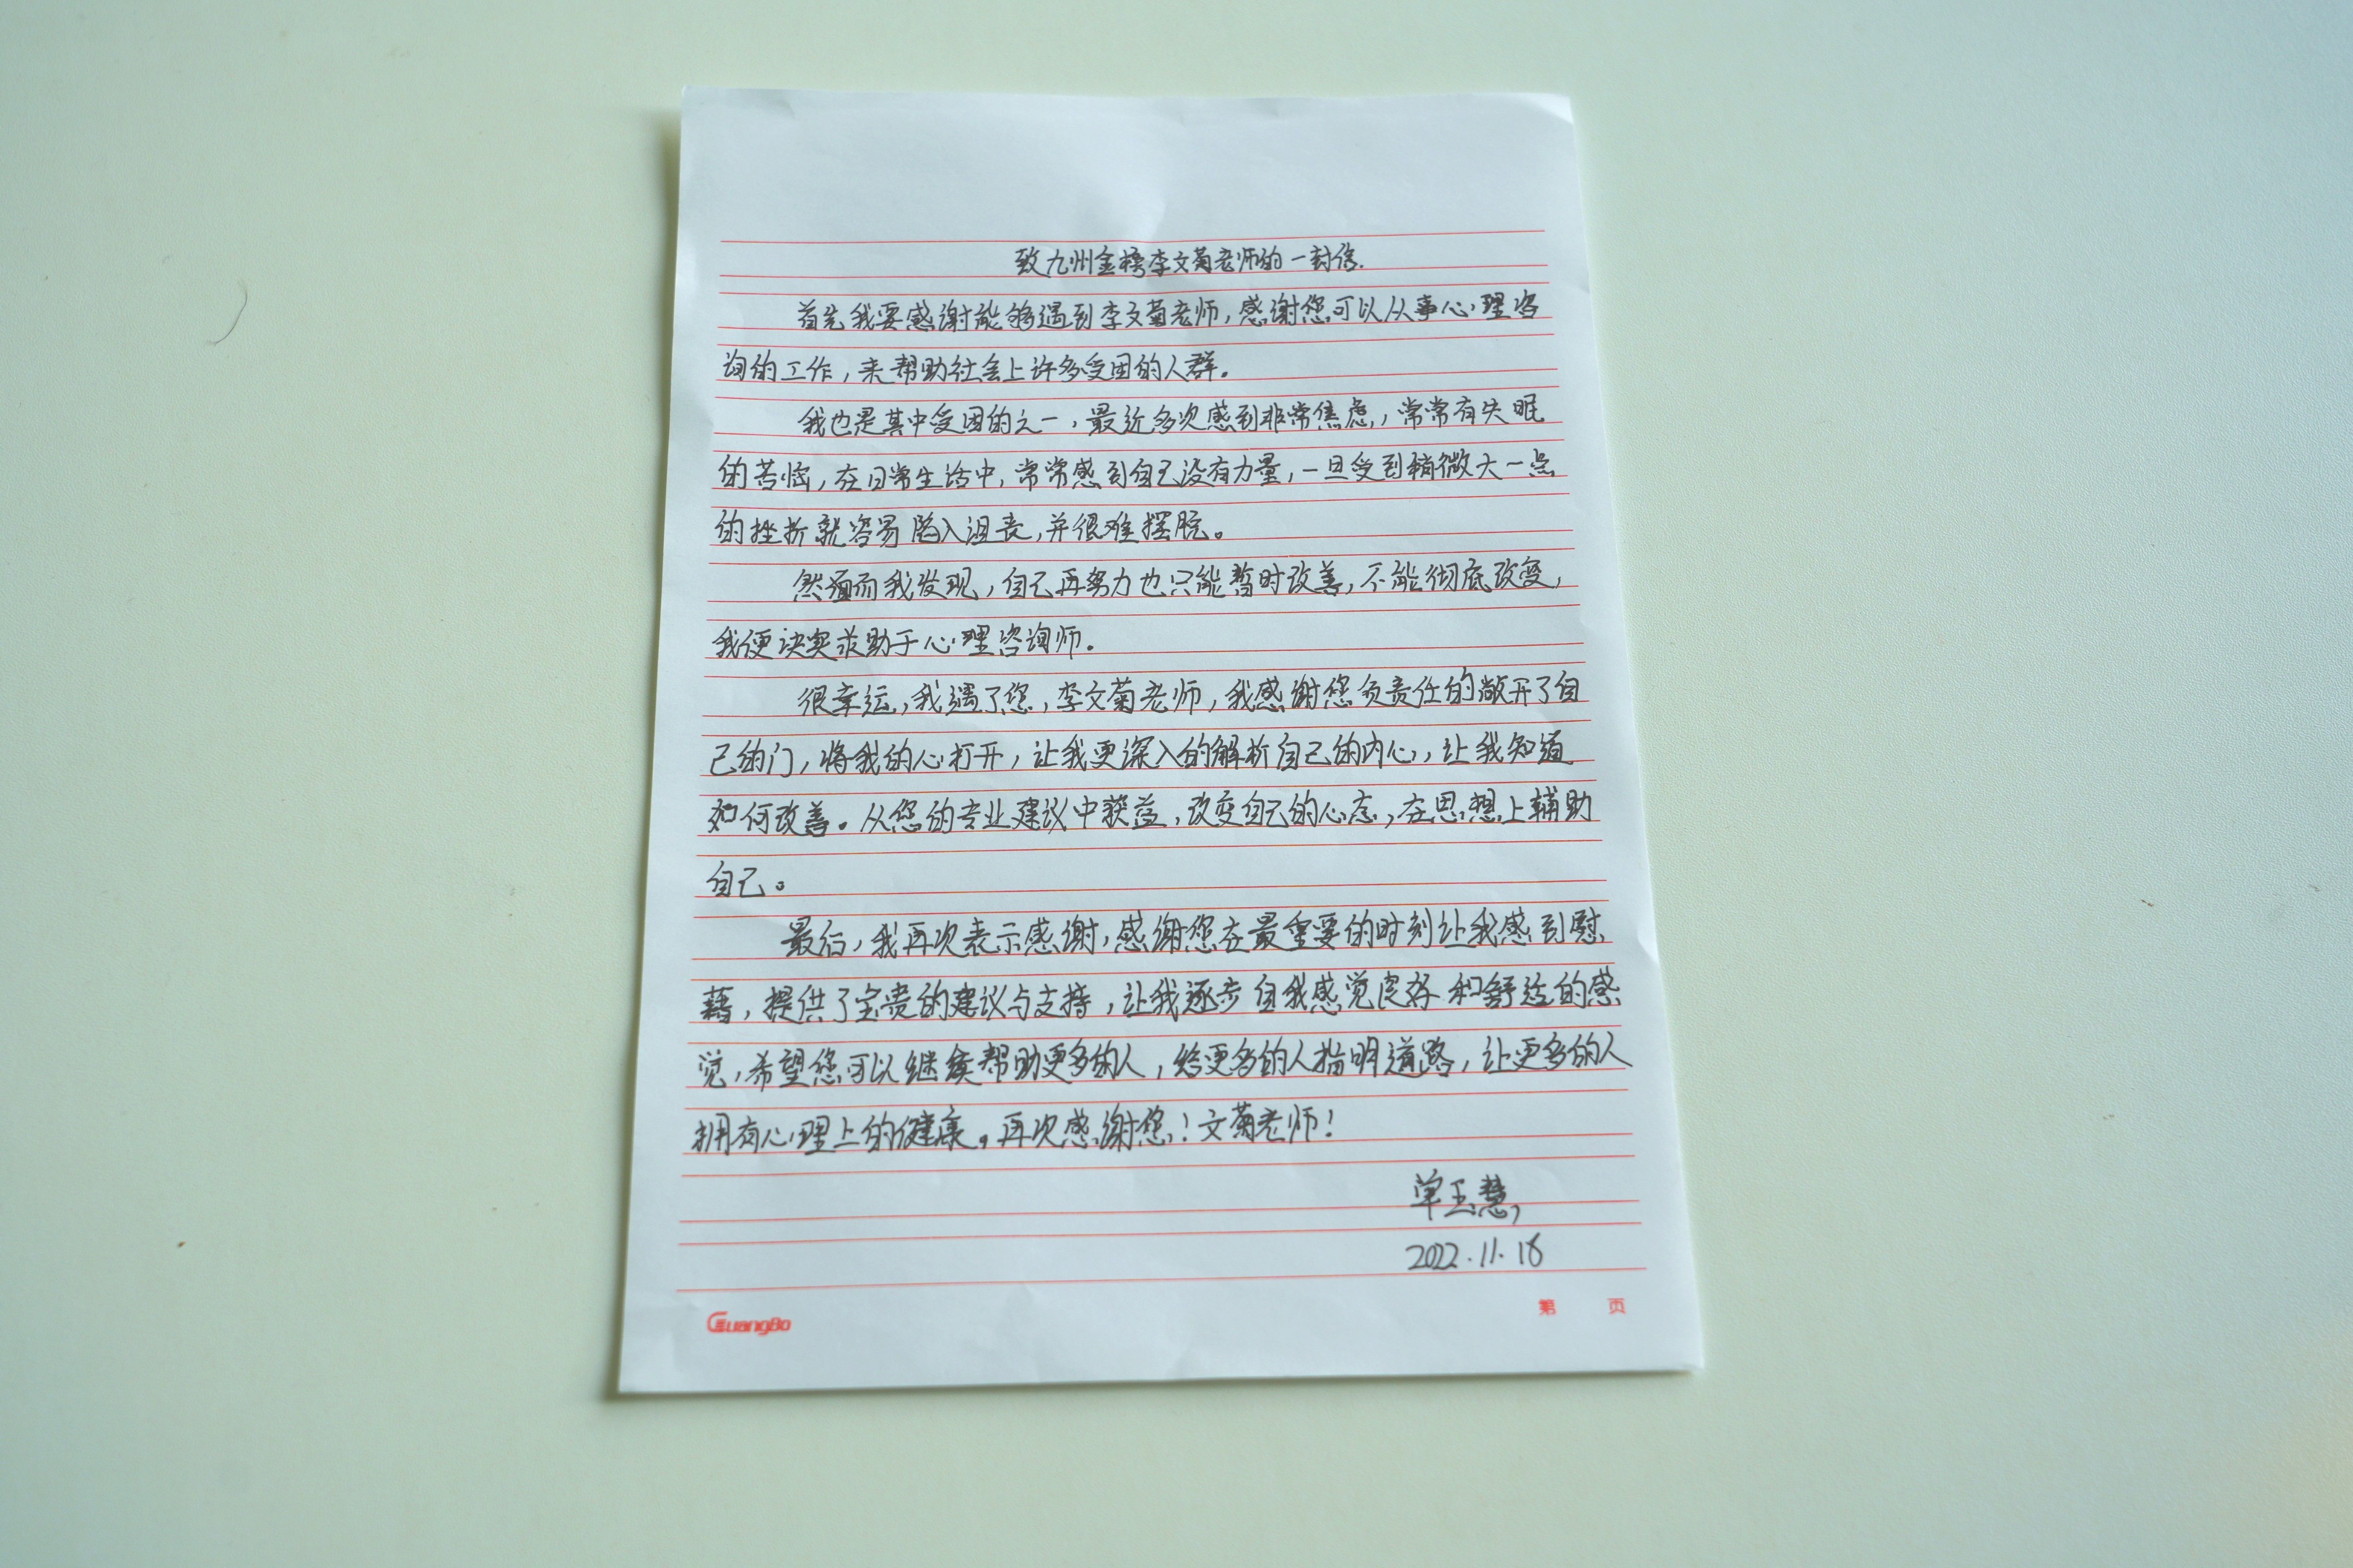 致九州金榜李文菊老师的一封信.
首先我要感谢能够遇到李文菊老师，感谢您可以从事心理咨
询的工作，来帮助社会上许多受困的人群。
我也是其中受困的之一，最近多次感到非常焦虑，常常有失眠
的苦恼，在日常生活中，常常感到自己没有力量，一旦受到稍微大一点
的挫折就容易陷入沮丧，并很难摆脱。
然而我发现，自己再努力也只能暂时改善，不能彻底改变，
我便决定求助于心理咨询师。
很幸运，我遇了您，李文菊老师，我感谢您负责任的敞开了自
己的门，将我的心打开，让我更深入的解析自己的内心，让我知道
如何改善。从您的专业建议中获益，改变自己的心态，在思想上辅助
自己。
最后，我再次表示感谢，感谢您在最重要的时刻让我感到慰
藉，提供了宝贵的建议与支持，让我逐步自我感觉良好和舒适的感
觉，希望您可以继续帮助更多的人，给更多的人指明道路，让更多的人
拥有心理上的健康。再次感谢您！文菊老师！
单玉慧
2022.11.18
GuangBo
第 页